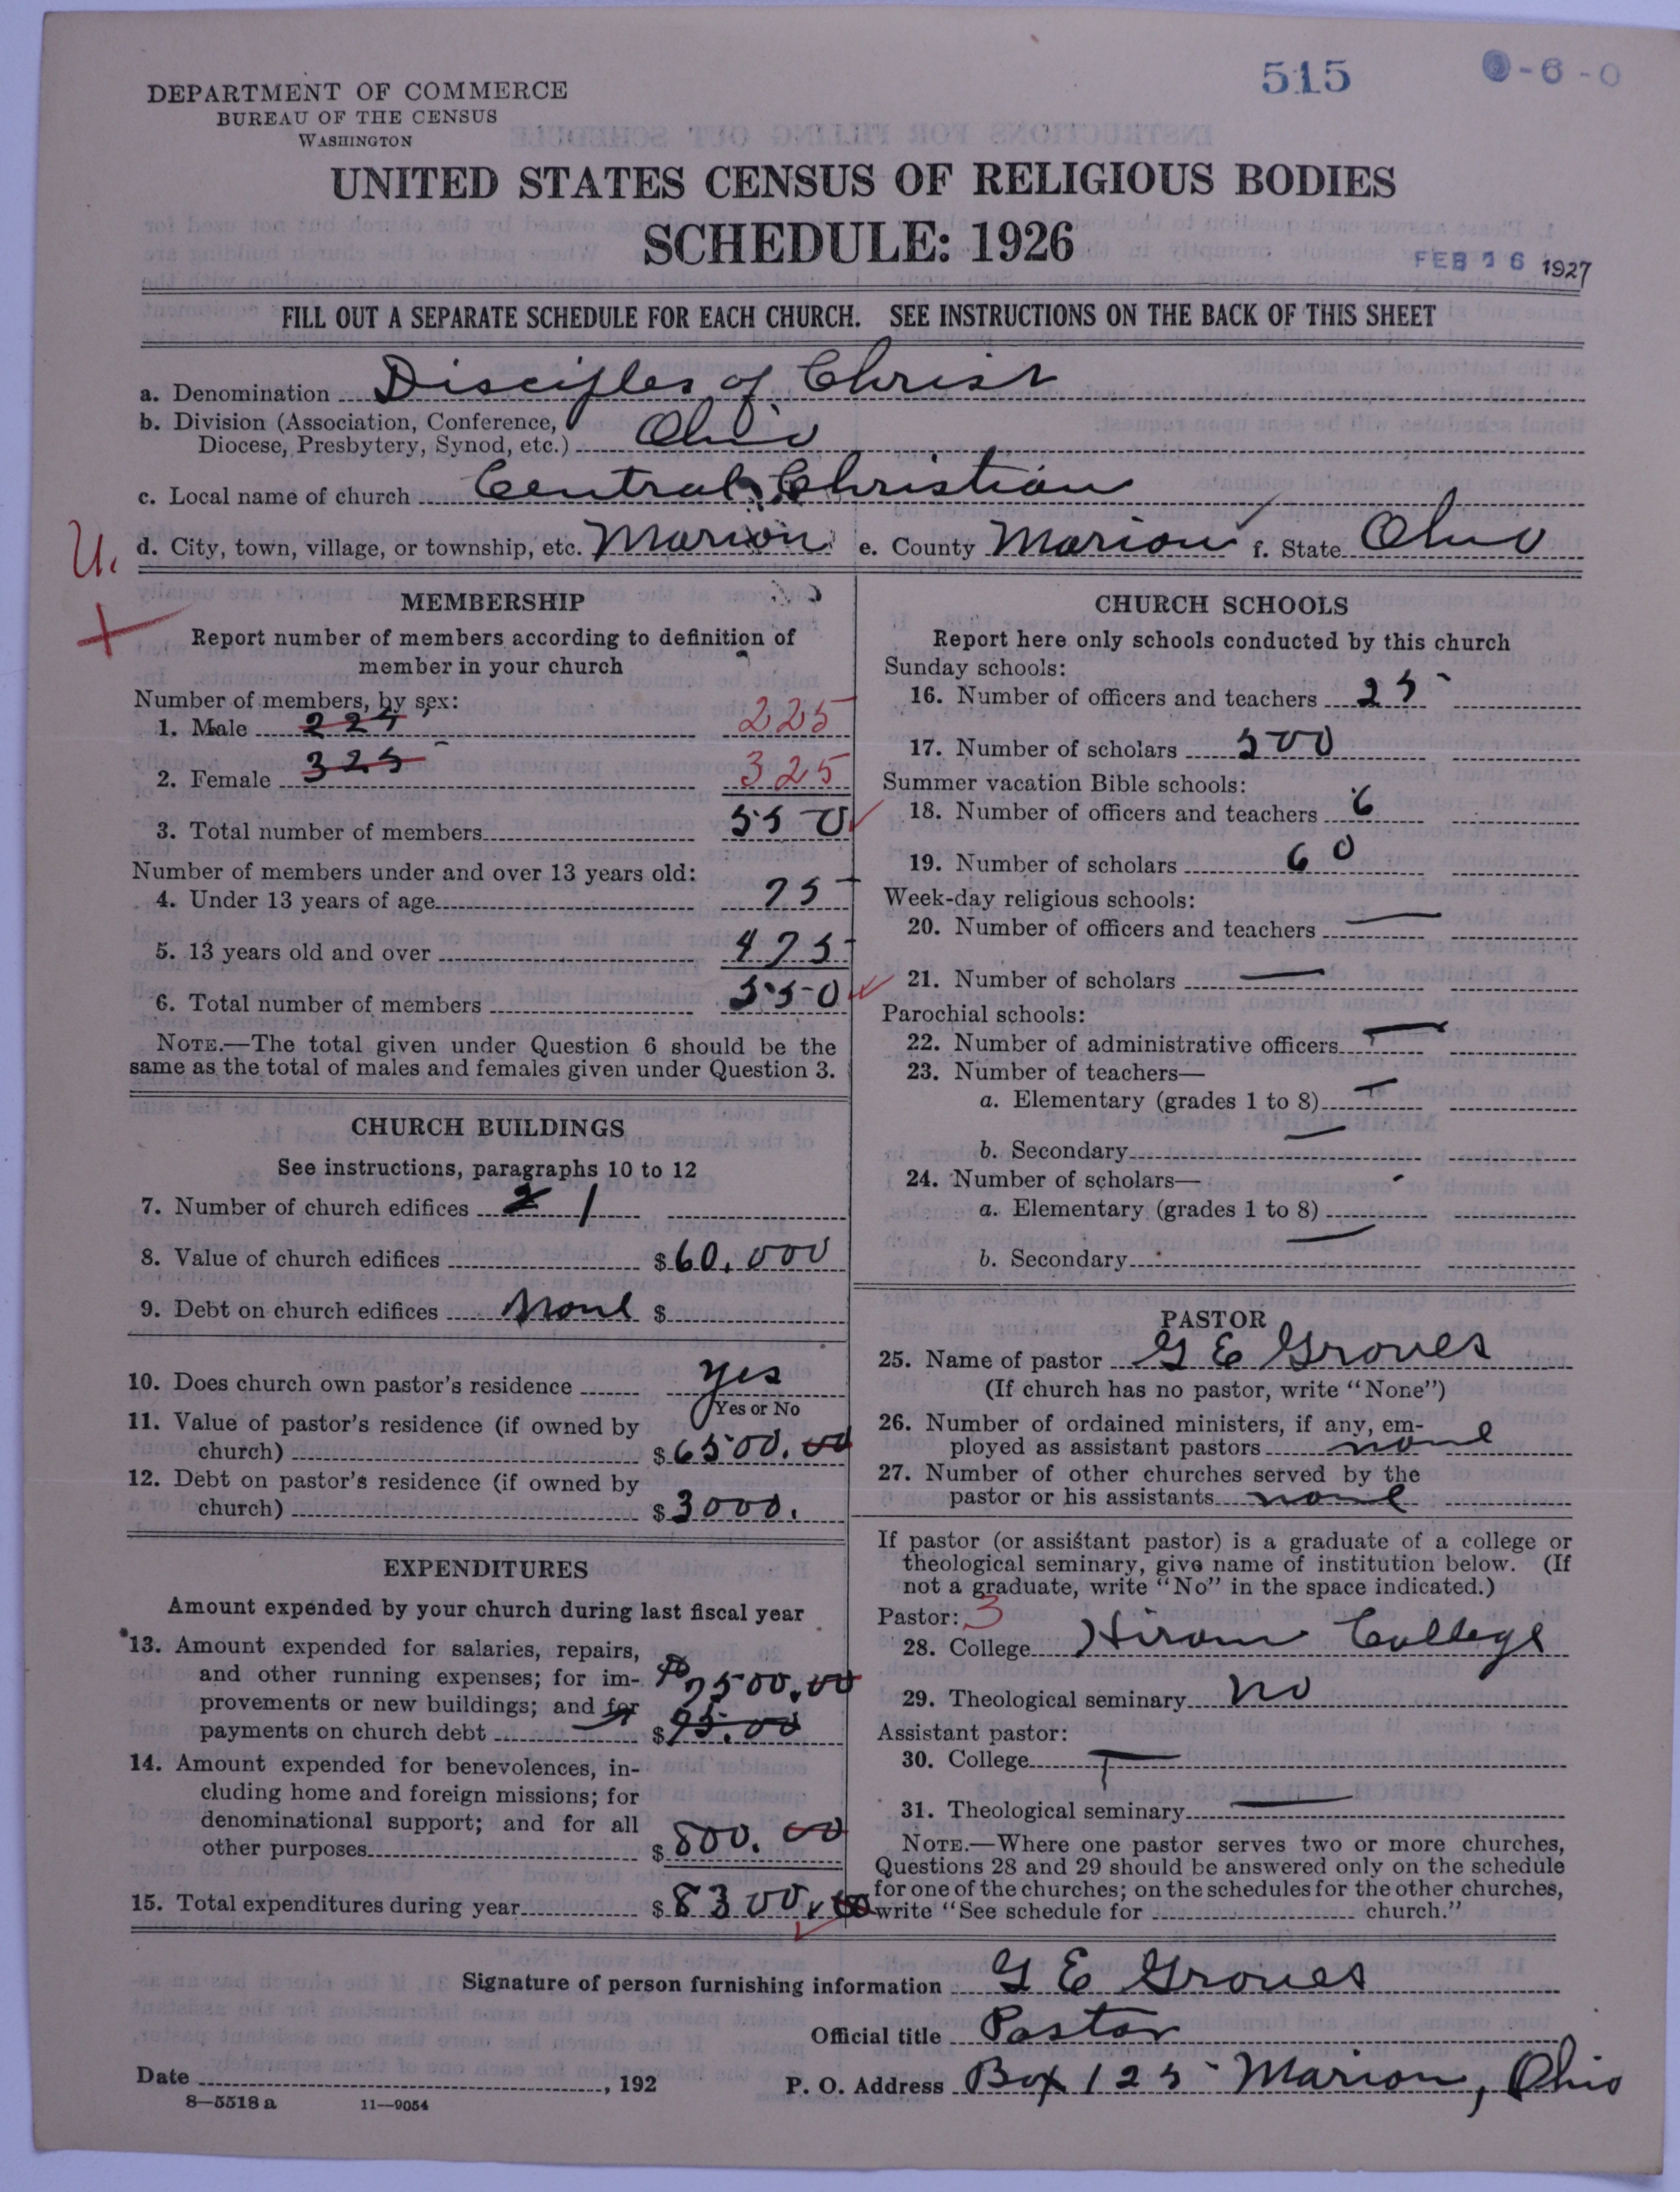 515
-6-0
DEPARTMENT OF COMMERCE
BUREAU OF THE CENSUS
WASHINGTON
UNITED STATES CENSUS OF RELIGIOUS BODIES
SCHEDULE: 1926
FEB 16 1927
FILL OUT A SEPARATE SCHEDULE FOR EACH CHURCH. SEE INSTRUCTIONS ON THE BACK OF THIS SHEET
a. Denomination Disciples of Christ
b. Division (Association, Conference,
Diocese, Presbytery, Synod, etc.) Ohio
c. Local name of church Central Christian
U. d. City, town, village, or township, etc. Marion e. County Marion f. State Ohio
MEMBERSHIP
Report number of members according to definition of
member in your church
Number of members, by sex:
1. Male 225 225
2. Female 325 325
3. Total number of members 550
Number of members under and over 13 years old:
4. Under 13 years of age 75
5. 13 years old and over 475
6. Total number of members 550
NOTE.—The total given under Question 6 should be the
same as the total of males and females given under Question 3.
CHURCH BUILDINGS
See instructions, paragraphs 10 to 12
7. Number of church edifices 2 1
8. Value of church edifices $60,000
9. Debt on church edifices None $
10. Does church own pastor's residence Yes
Yes or No
11. Value of pastor's residence (if owned by
church) $6500.00
12. Debt on pastor's residence (if owned by
church) $3000.
EXPENDITURES
Amount expended by your church during last fiscal year
13. Amount expended for salaries, repairs,
and other running expenses; for im- $7500.00
provements or new buildings; and for
payments on church debt $75.00
14. Amount expended for benevolences, in-
cluding home and foreign missions; for
denominational support; and for all
other purposes $800.00
15. Total expenditures during year $8300.00
CHURCH SCHOOLS
Report here only schools conducted by this church
Sunday schools:
16. Number of officers and teachers 25
17. Number of scholars 500
Summer vacation Bible schools:
18. Number of officers and teachers 6
19. Number of scholars 60
Week-day religious schools:
20. Number of officers and teachers —
21. Number of scholars —
Parochial schools:
22. Number of administrative officers —
23. Number of teachers—
a. Elementary (grades 1 to 8) —
b. Secondary —
24. Number of scholars—
a. Elementary (grades 1 to 8) -
b. Secondary —
PASTOR
25. Name of pastor G E Groves
(If church has no pastor, write "None")
26. Number of ordained ministers, if any, em-
ployed as assistant pastors none
27. Number of other churches served by the
pastor or his assistants none
If pastor (or assistant pastor) is a graduate of a college or
theological seminary, give name of institution below. (If
not a graduate, write "No" in the space indicated.)
Pastor: 3
28. College Hiram College
29. Theological seminary No
Assistant pastor:
30. College —
31. Theological seminary —
NOTE.—Where one pastor serves two or more churches,
Questions 28 and 29 should be answered only on the schedule
for one of the churches; on the schedules for the other churches,
write "See schedule for church."
Signature of person furnishing information G E Groves
Official title Pastor
Date , 192 P. O. Address Box 125 Marion, Ohio
8—5518 a 11—9054